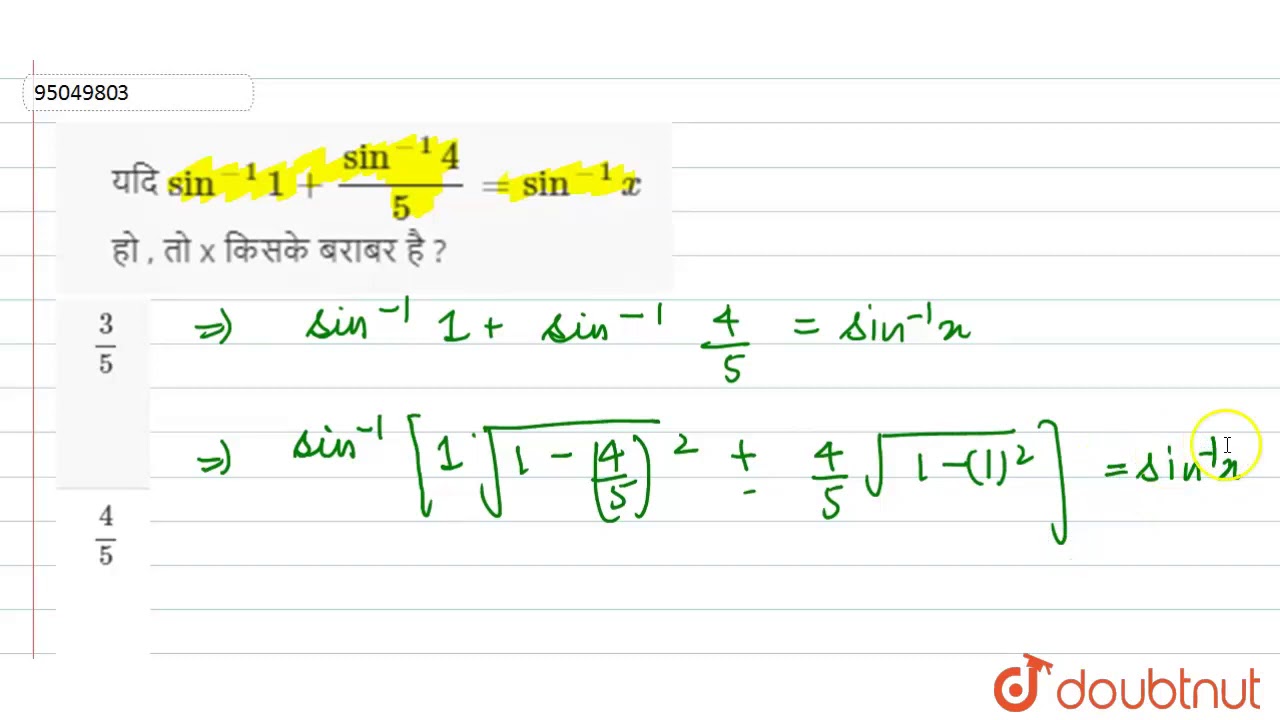 95049803
यदि sin⁻¹ 1 + (sin⁻¹ 4)/5 = sin⁻¹ x
हो , तो x किसके बराबर है ?
3/5
⇒ sin⁻¹ 1 + sin⁻¹ 4/5 = sin⁻¹x
⇒ sin⁻¹ [1·√(1 - (4/5)²) + 4/5 √(1-(1)²)] = sin⁻¹x
4/5
doubtnut